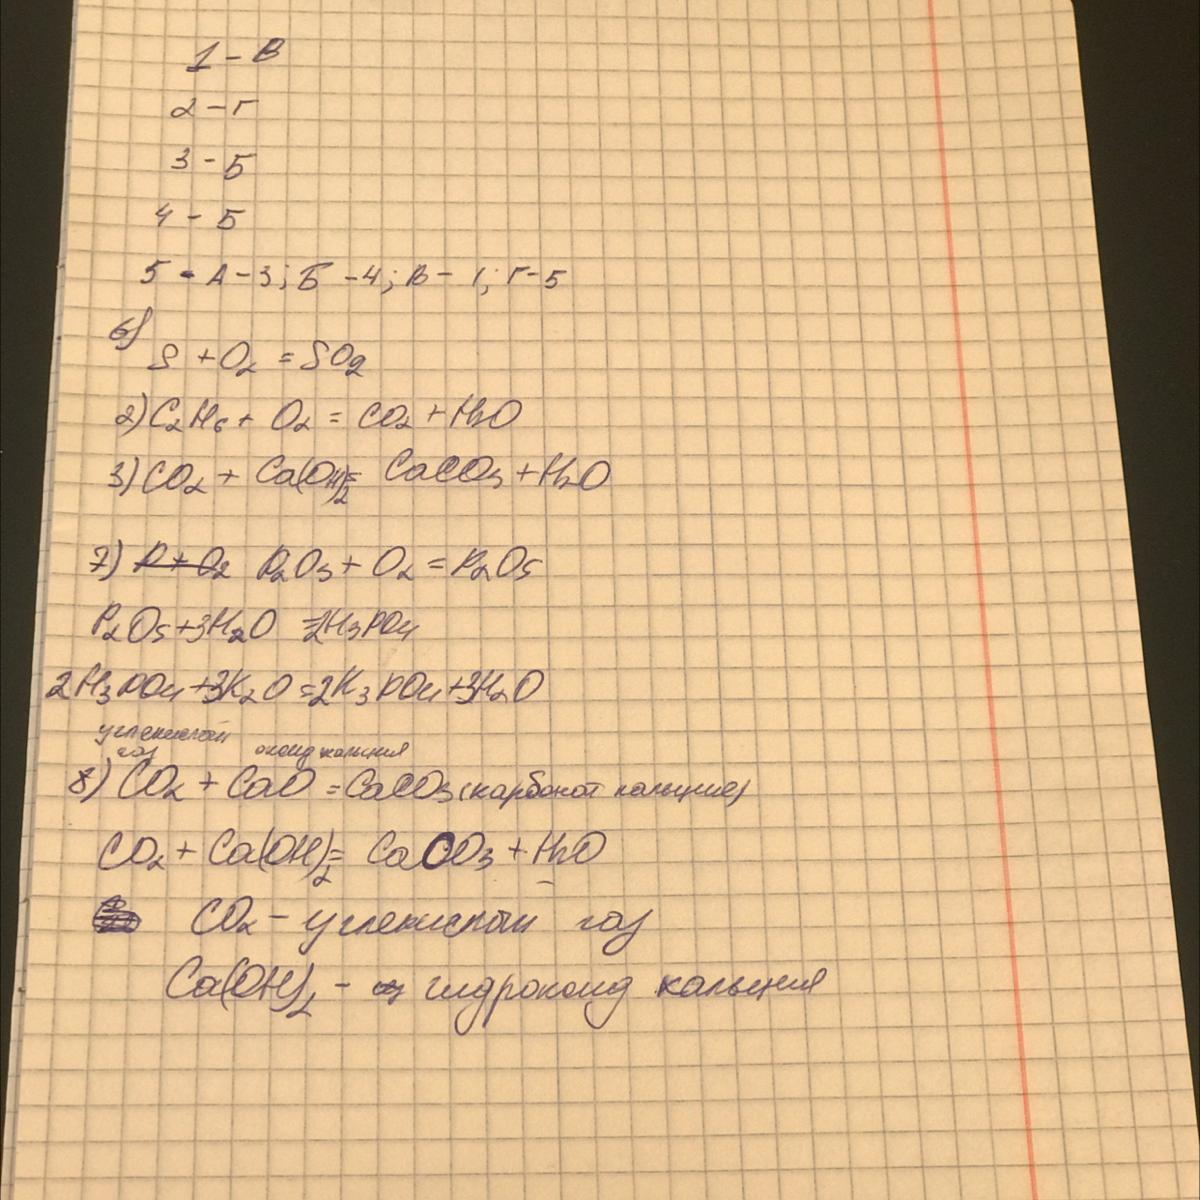 1 - В
2 - Г
3 - Б
4 - Б
5 - А - 3; Б - 4; В - 1; Г - 5
6)
S + O2 = SO2
2) C2H6 + O2 = CO2 + H2O
3) CO2 + Ca(OH)2 = CaCO3 + H2O
7) P + O2 P2O3 + O2 = P2O5
P2O5 + 3H2O = 2H3PO4
2H3PO4 + 3K2O = 2K3PO4 + 3H2O
углекислый
газ оксид кальция
8) CO2 + CaO = CaCO3 (карбонат кальция)
CO2 + Ca(OH)2 = CaCO3 + H2O
CO2 - углекислый газ
Ca(OH)2 - гидроксид кальция